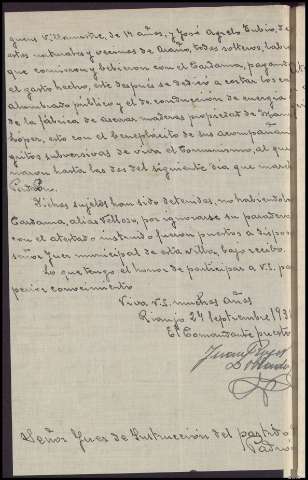 de 14 años, y José Agrelo Tubio, de
estos naturales y vecinos de Araño, todos solteros, habien
que comieron y bebieron con el Cardama, pagando
el gasto hecho, este despues se dedicó a cortar los
alumbrado público y el de conducción de energia
de la fábrica de aserrar maderas propiedad de
Lopez, esto con el beneplacito de sus acompañan
gritos subversivos de viva el Comunismo, al que
naron hasta las dos del siguiente dia que march
Dichos sujetos han sido detenidos, no habiendolo
Cardama, alias Velloso, por ignorarse su paradero
con el atestado instruido fueron puestos a dispos
señor Juez municipal de esta villa, bajo recibo.
Lo que tengo el honor de participar a V.S. pa
perior conocimiento
Viva V.S. muchos años
Rianjo 24 Septiembre 193
El Comandante puesto
Juan
Señor Juez de Instrucción del partido
Padrón